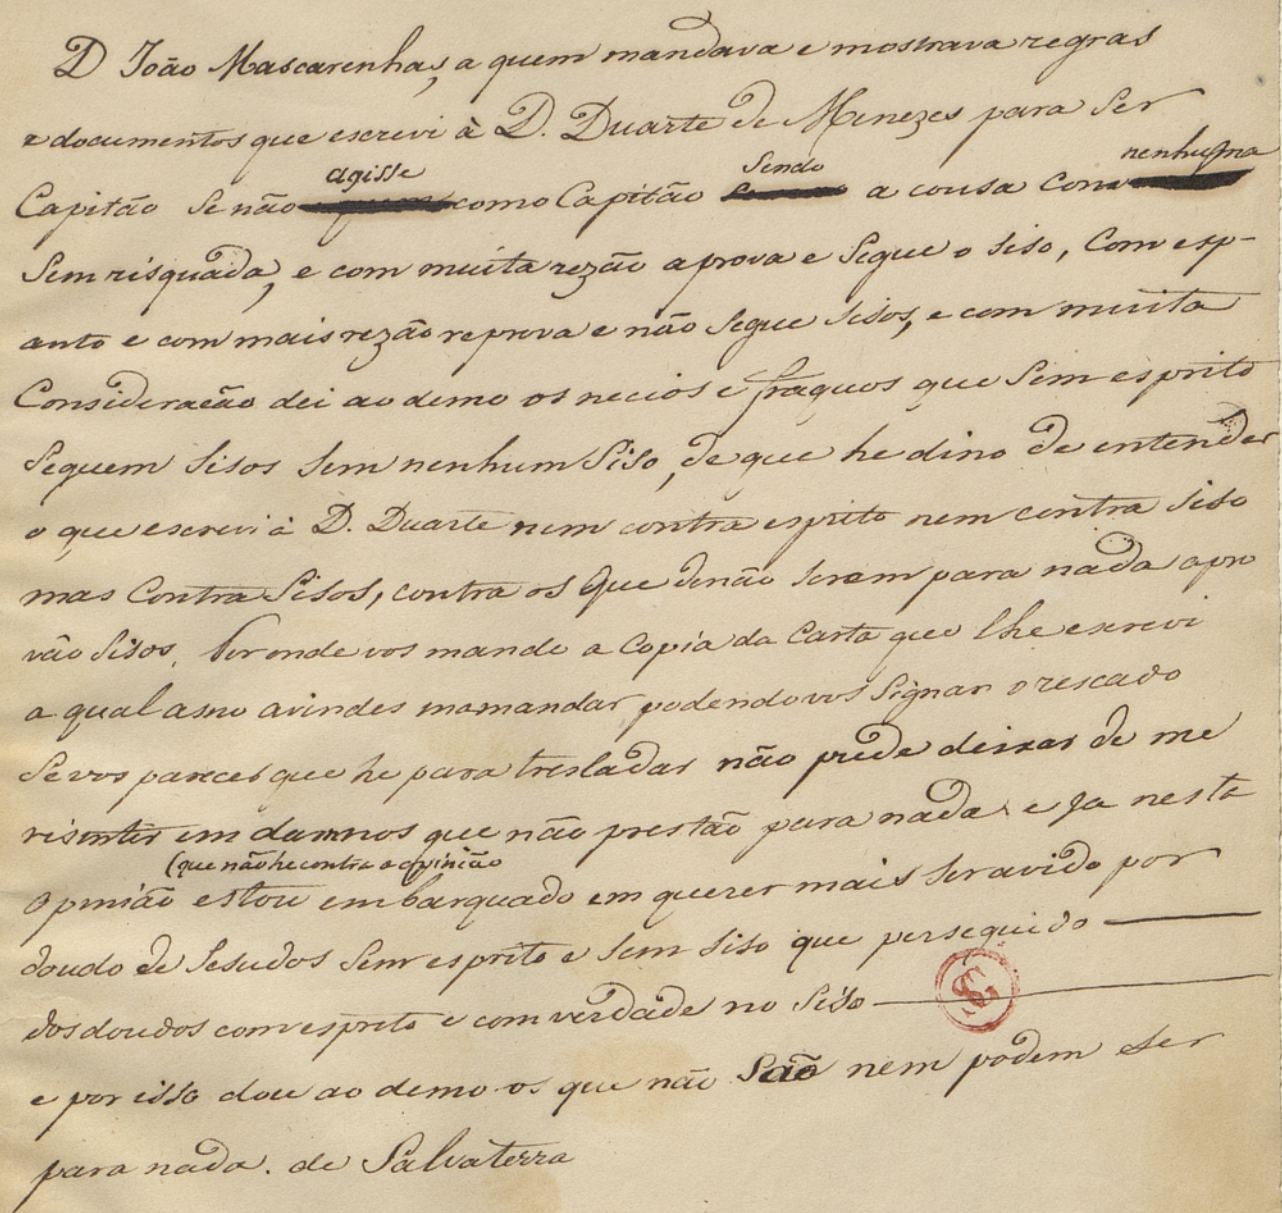 D João Mascarenhas, a quem mandava e mostrava regras
e documentos que escrevi à D. Duarte de Menezes para Ser
agisse Sendo nenhuma
Capitão Se não como Capitão a cousa com
Sem risquada, e com muita rezão aprova e Segue o siso, Com esp-
anto e com mais rezão reprova e não Segue Sisos, e com muita
Consideração dei ao demo os necios e fraquos que Sem esprito
Seguem Sisos Sem nenhum Siso, de que he dino de entender
o que escrevi à D. Duarte nem contra esprito nem contra Siso
mas Contra Sisos, contra os que de não serem para nada apro
vão Sisos. Por onde vos mando a Copia da Carta que lhe escrevi
a qual asno avindes mamandar podendovos Signar o rescado
Se vos parecer que he para tresladar não pude deixar de me
risintir em damnos que não prestão para nada e ja nesta
(que não he contra a opinião
Opinião estou embarquado em querer mais Ser avido por
doudo de Sesudos Sem esprito e Sem Siso que perseguido
dos doudos com esprito e com verdade no Siso
e por isso dou ao demo os que não São nem podem Ser
para nada. de Salvaterra